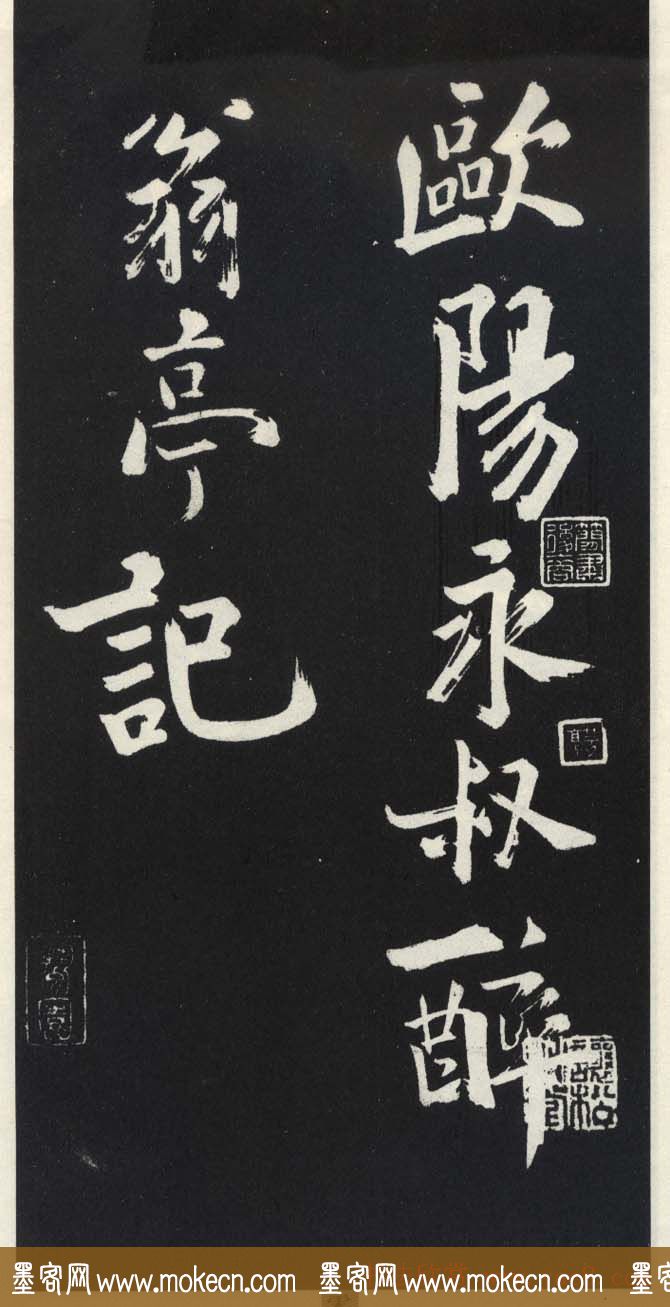 歐陽永叔醉
翁亭記
墨客网 www.mokecn.com 墨客网 www.mokecn.com